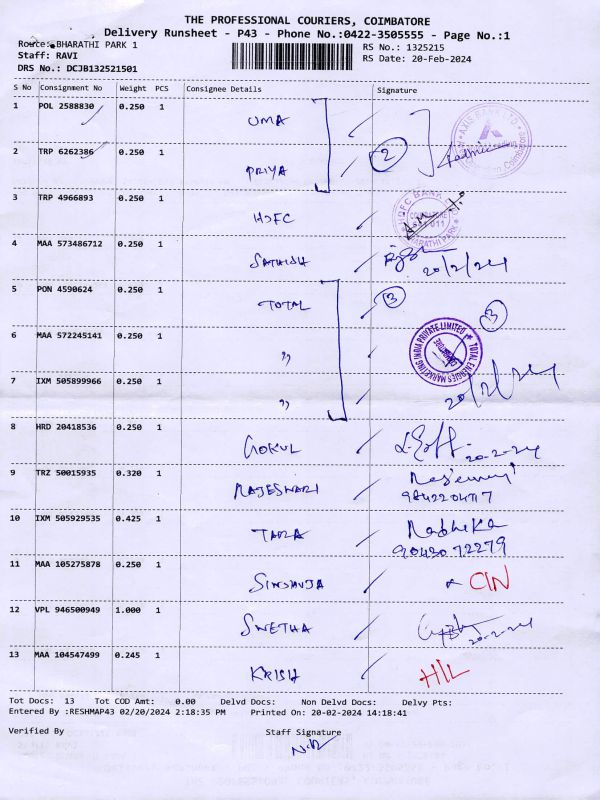 THE PROFESSIONAL COURIERS, COIMBATORE
Delivery Runsheet - P43 - Phone No.:0422-3505555 - Page No.:1
Route: BHARATHI PARK 1
RS No.: 1325215
Staff: RAVI
RS Date: 20-Feb-2024
DRS No.: DCJB132521501
S No Consignment No Weight PCS Consignee Details Signature
1 POL 2588830 0.250 1 UMA
AXIS BANK LTD
2 TRP 6262386 0.250 1 PRIYA 2
3 TRP 4966893 0.250 1 HDFC
HDFC BANK
BHARATHI PARK
4 MAA 573486712 0.250 1 SATHISH 20/2/2024
5 PON 4590624 0.250 1 TOTAL 3 3
6 MAA 572245141 0.250 1 "
TOTAL ENERGIES MARKETING INDIA PRIVATE LIMITED
7 IXM 505899966 0.250 1 " 20/2/2024
8 HRD 20418536 0.250 1 GOKUL 20-2-2024
9 TRZ 50015935 0.320 1 RAJESWARI
10 IXM 505929535 0.425 1 TARA Radhika
90430 72279
11 MAA 105275878 0.250 1 CIN
12 VPL 946500949 1.000 1 SWETHA 20-2-2024
13 MAA 104547499 0.245 1 KRISH HIL
Tot Docs: 13 Tot COD Amt: 0.00 Delvd Docs: Non Delvd Docs: Delvy Pts:
Entered By :RESHMAP43 02/20/2024 2:18:35 PM Printed On: 20-02-2024 14:18:41
Verified By Staff Signature